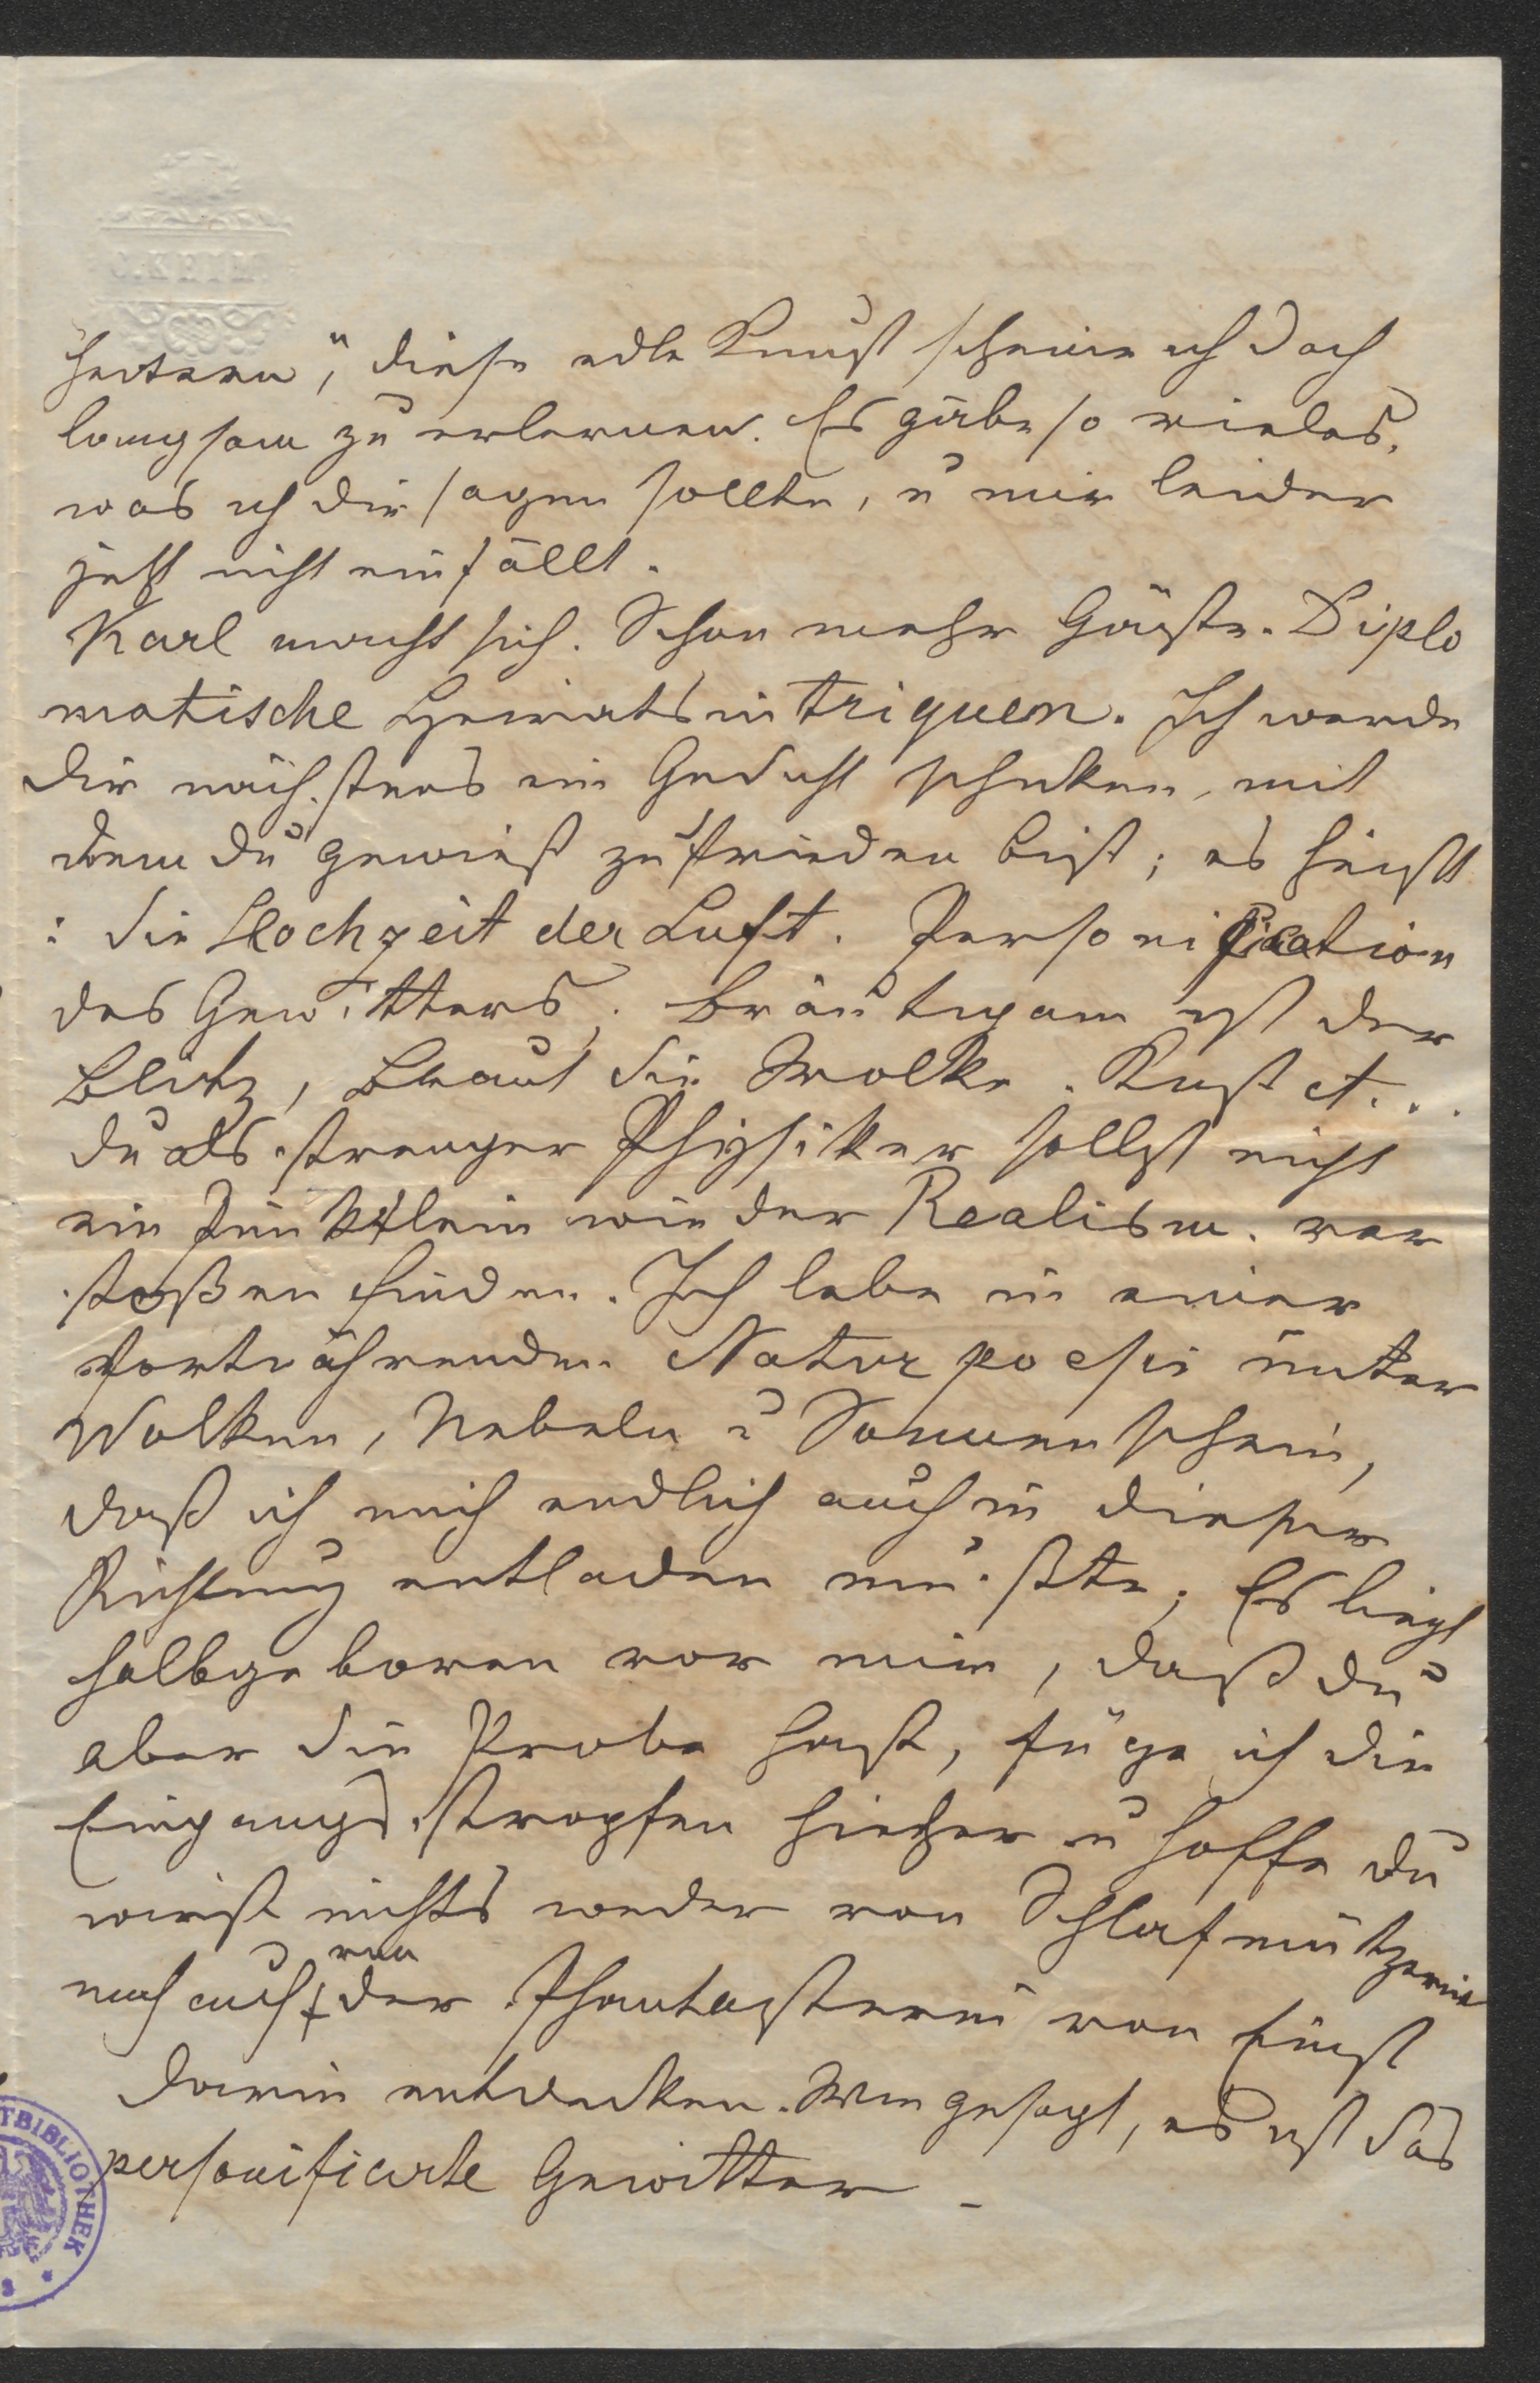 heitern", diese edle Kunst scheine ich doch
langsam zu erlernen. Es gäbe so vieles,
was ich dir sagen sollte, u mir leider
jetzt nicht einfällt.
Karl macht sich. Schon mehr Gäste. Diplo
matische Heiratsintriguen. Ich werde
dir nächstens ein Gedicht schicken, mit
dem du gewiß zufrieden bist; es heißt
: die Hochzeit der Luft. Personification
des Gewitters. Bräutigam ist der
Blitz, Braut die Wolke. Kuß et...
du als strenger Physiker sollst nicht
ein Pünktlein wieder Realism. ver
stoßen finden. Ich lebe in einer
fortwährenden Naturpoesie unter
Wolken, Nebeln u Sonnenschein,
daß ich mich endlich auch in dieser
Richtung entladen mußte; Es liegt
halbgeboren vor mir, daß du
aber die Probe hast, füge ich die
Eingangsstropfen hieher u hoffe du
wirst nichts weder von Schlafmützerei
noch auch von der Phantasterei von Einst
darin entdecken. Wie gesagt, es ist das
personificirte Gewitter –
TBIBLIOTHEK